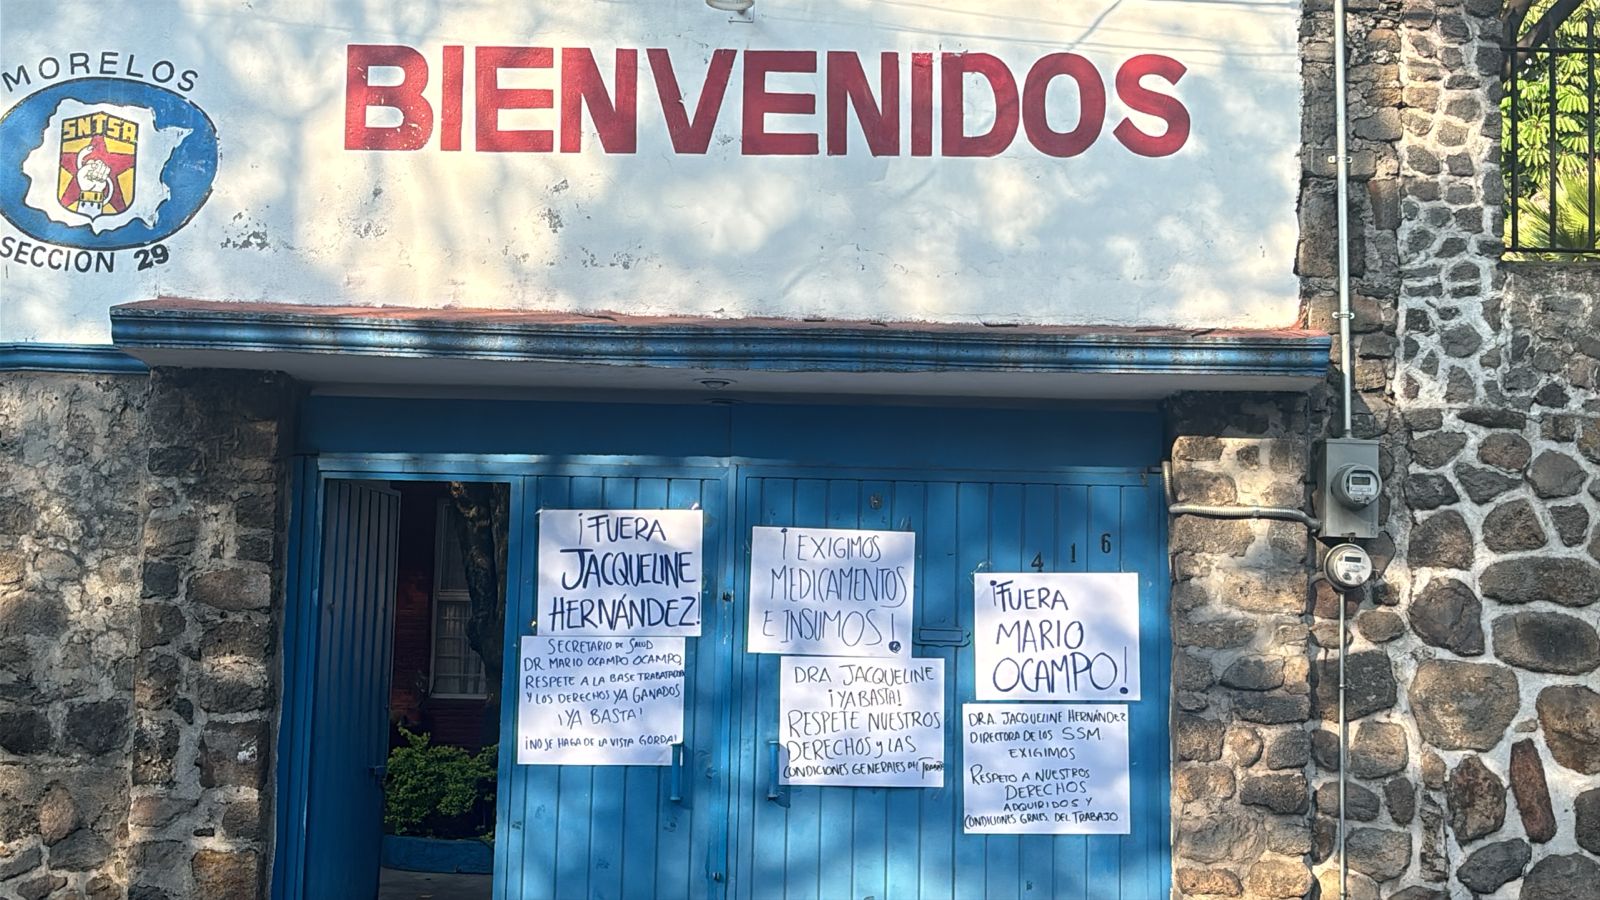 MORELOS
SNTSA
SECCION 29
BIENVENIDOS
416
¡FUERA
JACQUELINE
HERNÁNDEZ!
SECRETARIO DE SALUD
DR. MARIO OCAMPO OCAMPO,
RESPETE A LA BASE TRABAJADORA
Y LOS DERECHOS YA GANADOS
¡YA BASTA!
¡NO SE HAGA DE LA VISTA GORDA!
¡EXIGIMOS
MEDICAMENTOS
E INSUMOS!
DRA JACQUELINE
¡YA BASTA!
RESPETE NUESTROS
DERECHOS Y LAS
CONDICIONES GENERALES DEL
¡FUERA
MARIO
OCAMPO!
DRA. JACQUELINE HERNÁNDEZ
DIRECTORA DE LOS SSM.
EXIGIMOS
RESPETO A NUESTROS
DERECHOS
ADQUIRIDOS Y
CONDICIONES GRALES. DEL TRABAJO